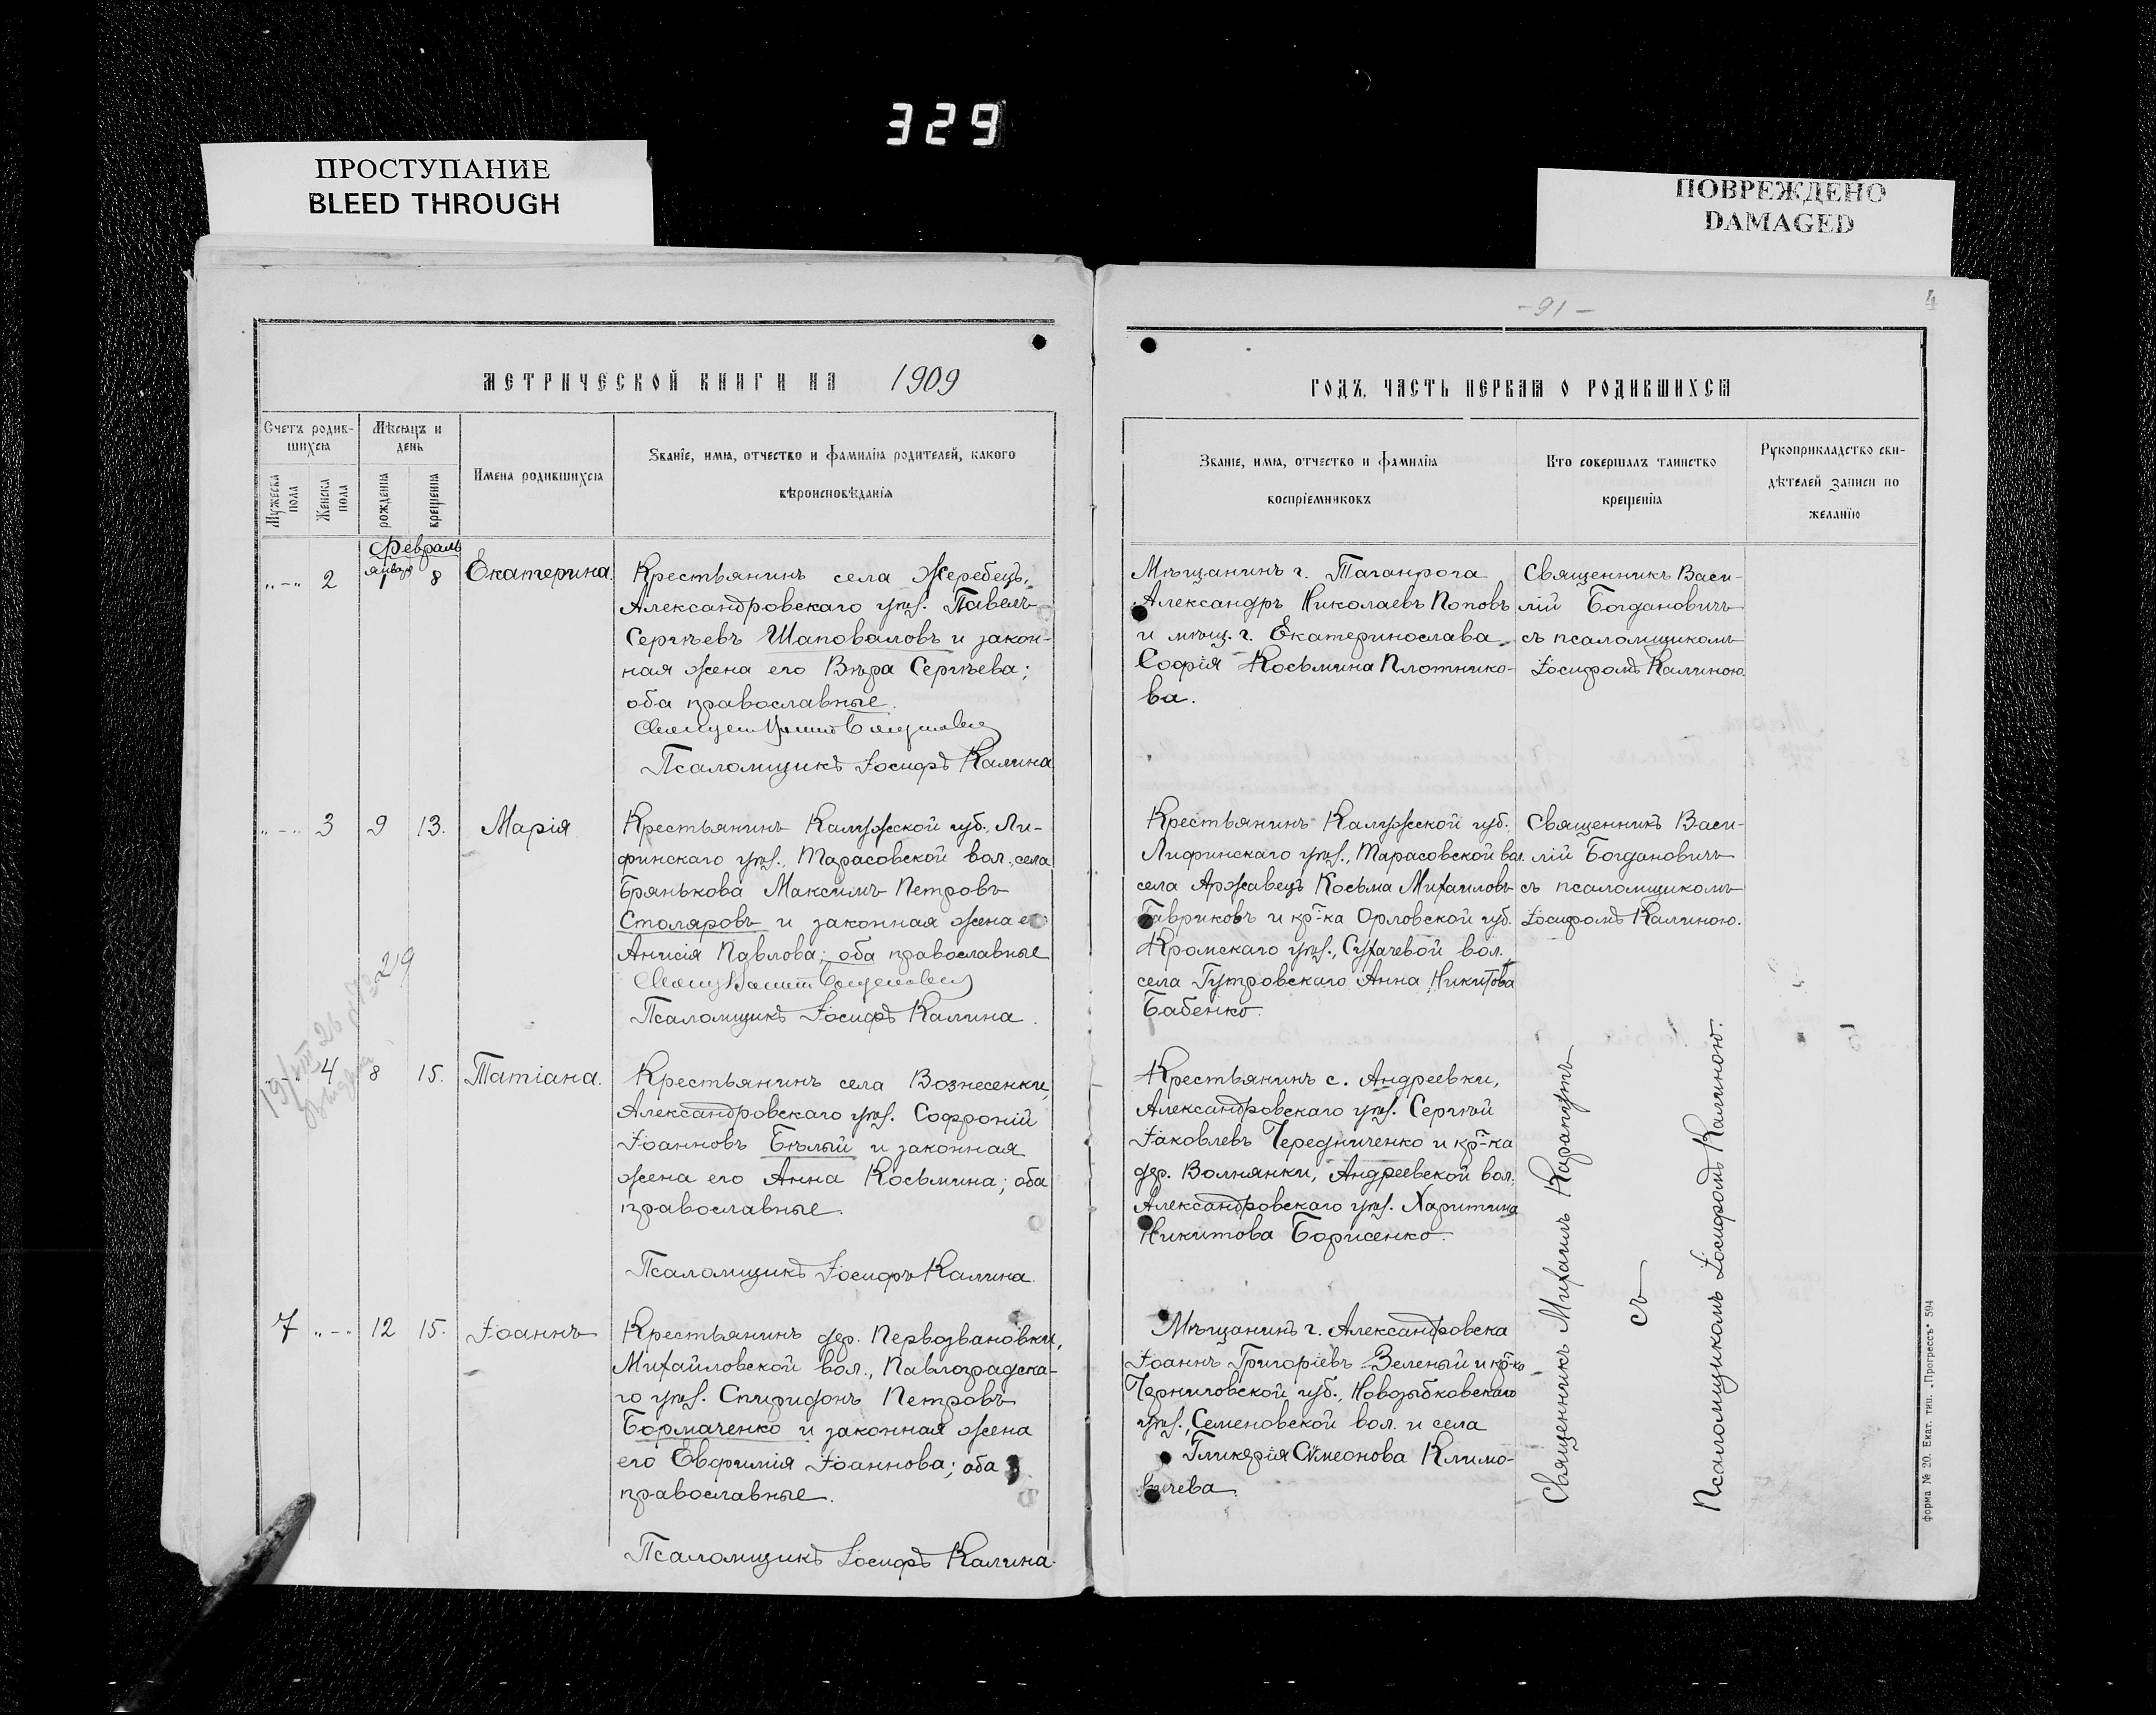 329
ПРОСТУПАНИЕ
BLEED THROUGH
ПОВРЕЖДЕНО
DAMAGED
МЕТРИЧЕСКОЙ КНИГИ НА 1909
Счетъ родив-
шихсѧ
Мѣсѧцъ и
день
Мужеска
пола
Женска
пола
рожденїѧ
крещенїѧ
Имена родившихсѧ
Званїе, имѧ, отчество и фамилїѧ родителей, какого
вѣроисповѣданїѧ
Февраль
„-„ 2
января
1 8
Екатерина.
Крестьянинъ села Жеребецъ,
Александровскаго уѣз. Павелъ
Сергѣевъ Шаповаловъ и закон-
ная жена его Вѣра Сергѣева;
оба православные.
Псаломщикъ Іосифъ Калина
„-„ 3 9 13. Марія
Крестьянинъ Калужской губ. Ли-
финскаго уѣз., Тарасовской вол., села
Брянькова Максимъ Петровъ
Столяровъ и законная жена е
Анисія Павлова; оба православные
Псаломщикъ Іосифъ Калина.
4 8 15. Татіана.
Крестьянинъ села Вознесенки,
Александровскаго уѣз. Софроній
Іоанновъ Бѣлый и законная
жена его Анна Косьмина; оба
православные.
Псаломщикъ Іосифъ Калина.
7 „-„ 12 15. Іоаннъ
Крестьянинъ дер. Первозвановки,
Михайловской вол., Павлоградска-
го уѣз. Спиридонъ Петровъ
Бормаченко и законная жена
его Евфимія Іоаннова; оба
православные.
Псаломщикъ Іосифъ Калина.
-91-
4
ГОДЪ, ЧАСТЬ ПЕРВАѦ О РОДИВШИХСѦ
Званїе, имѧ, отчество и фамилїѧ
воспрїемниковъ
Кто совершалъ таинство
крещенїѧ
Рукоприкладство сви-
дѣтелей записи по
желанїю
Мѣщанинъ г. Таганрога
Александръ Николаевъ Поповъ
и мѣщ. г. Екатеринослава
Софія Косьмина Плотнико-
ва.
Священникъ Васи-
лій Богдановичъ
съ псаломщикомъ
Іосифомъ Калиною.
Крестьянинъ Калужской губ.
Лифинскаго уѣз., Тарасовской вол.
села Аржавецъ Косьма Михаиловъ
Гавриковъ и кр-ка Орловской губ.
Кромскаго уѣз., Сухачевой вол.,
села Гутровскаго Анна Никитова
Бабенко.
Священникъ Васи-
лій Богдановичъ
съ псаломщикомъ
Іосифомъ Калиною.
Крестьянинъ с. Андреевки,
Александровскаго уѣз. Сергѣй
Іаковлевъ Чередниченко и кр-ка
дер. Волнянки, Андреевской вол.
Александровскаго уѣз. Харитина
Никитова Борисенко.
Мѣщанинъ г. Александровска
Іоаннъ Григоріевъ Зеленый и кр-ка
Черниговской губ., Новозыбковскаго
уѣз., Семеновской вол. и села
Гликерія Сѵмеонова Климо-
вичева.
Священникъ Михаилъ Карапутъ
съ
Псаломщикомъ Іосифомъ Калиною.
форма № 20. Екат. тип. „Прогрессъ“ 594